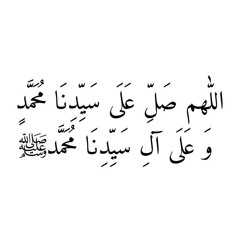 اللهم صَلِّ عَلَى سَيِّدِنَا مُحَمَّدٍ
وَ عَلَى آلِ سَيِّدِنَا مُحَمَّد ﷺ